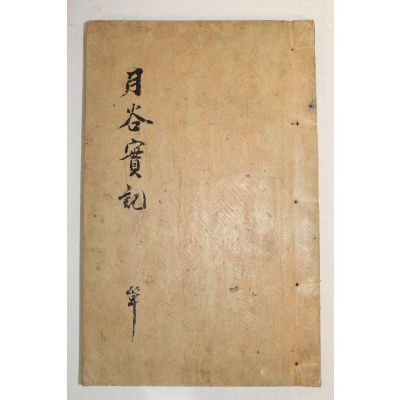 月谷實記
單